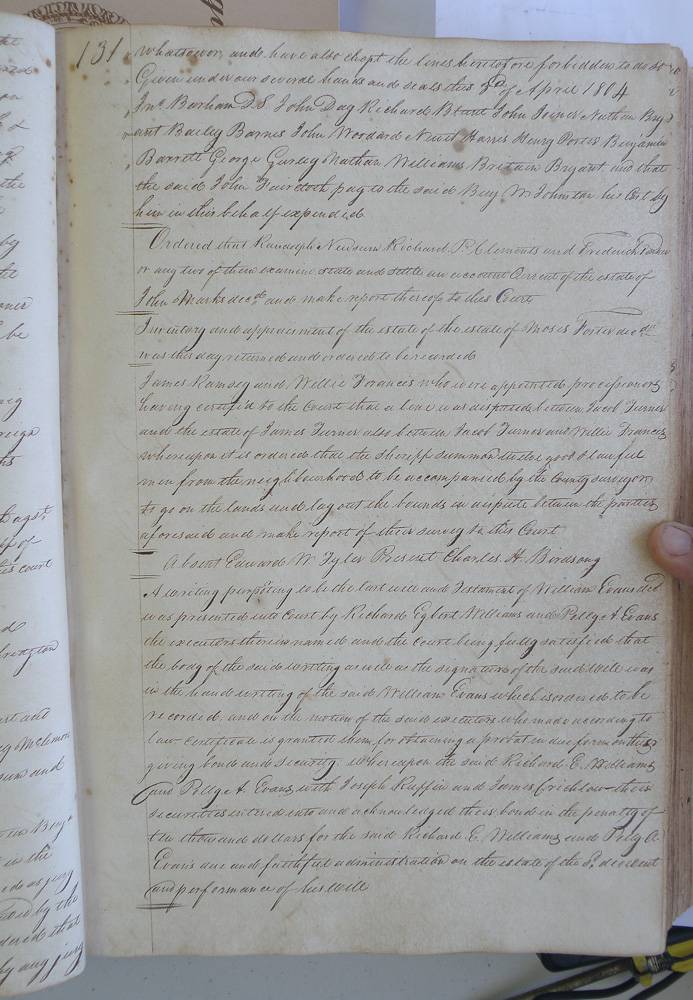 131
whatsoever, and have also chopt the lines heretofore forbidden to do so
Given under our several hands and seals this 3d of April 1804
Jno. Barham D.S John Day Richard Blunt John Joiner Nathan Bry-
ant Bailey Barnes John Woodard Newit Harris Henry Porter Benjamin
Barrett George Gurley Nathan Williams Britain Bryant and that
the said John pay to the said Benj W Johnston his Cost by
him in this behalf expended
Ordered that Randolph Newsum Richard P. Clements and Frederick
or any two of them examine state and settle an account Current of the estate of
John Marks decd. and make report thereof to this Court
Inventory and appraisment of the estate of the estate of Moses Foster decd.
was this day returned and ordered to be recorded
James Ramsey and Willie Francis who were appointed processioners
having certifi'd to the Court that a line was disputed between Jacob Turner
and the estate of James Turner also between Jacob Turner and Willie Francis
whereupon it is ordered that the Sheriff summon twelve good & lawful
men from the neighbourhood to be accompanied by the County surveyor
to go on the lands and lay out the bounds in dispute between the parties
aforesaid and make report of their survey to this Court
Absent Edward W Tyler Present Charles H. Birdsong
A writing purpoting to be the last will and Testament of William Evans decd
was presented into Court by Richard Egbert Williams and Polly A Evans
the executors therein named and the court being fully satisfied that
the body of the said writing as well as the signature of the said will was
in the hand writing of the said William Evans which is ordered to be
recorded, and on the motion of the said executors who made according to
law certificate is granted them for obtaining a probat in due form on their
giving bond and security whereupon the said Richard E. Williams
and Polly A Evans with Joseph Ruffin and James Crichlow their
securities entered into and acknowledged their bond in the penalty of
ten thousand dollars for the said Richard E. Williams and Polly A
Evans due and faithful administration on the estate of the sd. decedent
and performance of his will